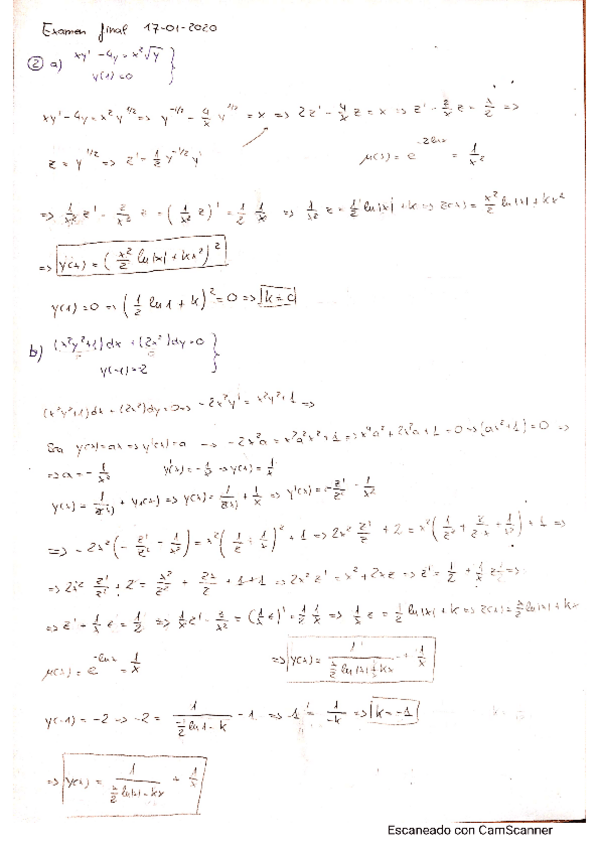 Examen final 17-01-2020
② a) xy' - 4y = x²√y
y(1) = 0
xy' - 4y = x² y^(1/2) ⇒ y^(-1/2) - 4/x y^(1/2) = x ⇒ 2z' - 4/x z = x ⇒ z' - 2/x z = x/2 ⇒
z = y^(1/2) ⇒ z' = 1/2 y^(-1/2) y' μ(x) = e^(-2lnx) = 1/x²
⇒ 1/x² z' - 2/x² z = (1/x² z)' = 1/2 1/x ⇒ 1/x² z = 1/2 ln|x| + K ⇒ z(x) = x²/2 ln|x| + kx²
⇒ y(x) = (x²/2 ln|x| + kx²)²
y(1) = 0 ⇒ (1/2 ln1 + k)² = 0 ⇒ k = 0
b) (x²y²+1)dx + (2x²)dy = 0
y(-1) = -2
(x²y²+1)dx + (2x²)dy = 0 ⇒ -2x²y' = x²y² + 1 ⇒
y(x) = ax ⇒ y'(x) = a → -2x²a = x²a²x² + 1 ⇒ x⁴a² + 2x²a + 1 = 0 ⇒ (ax²+1) = 0 ⇒
⇒ a = -1/x² y'(x) = -1/x² ⇒ y(x) = 1/x
y(x) = 1/z(x) + y₁(x) ⇒ y(x) = 1/z(x) + 1/x ⇒ y'(x) = -z'/z² - 1/x²
⇒ -2x²(-z'/z² - 1/x²) = x²(1/z + 1/x)² + 1 ⇒ 2x² z'/z² + 2 = x²(1/z² + 2/zx + 1/x²) + 1 ⇒
⇒ 2x² z'/z² + 2 = x²/z² + 2x/z + 1 + 1 ⇒ 2x² z' = x² + 2xz ⇒ z' = 1/2 + 1/x z ⇒
⇒ z' - 1/x z = 1/2 ⇒ 1/x z' - z/x² = (1/x z)' = 1/2 1/x ⇒ 1/x z = 1/2 ln|x| + k ⇒ z(x) = x/2 ln|x| + kx
μ(x) = e^(-lnx) = 1/x ⇒ y(x) = 1/(x/2 ln|x| + kx) + 1/x
y(-1) = -2 → -2 = 1/(-1/2 ln1 - k) - 1 ⇒ -1 = 1/-k ⇒
⇒ y(x) = 1 + 1/x
Escaneado con CamScanner